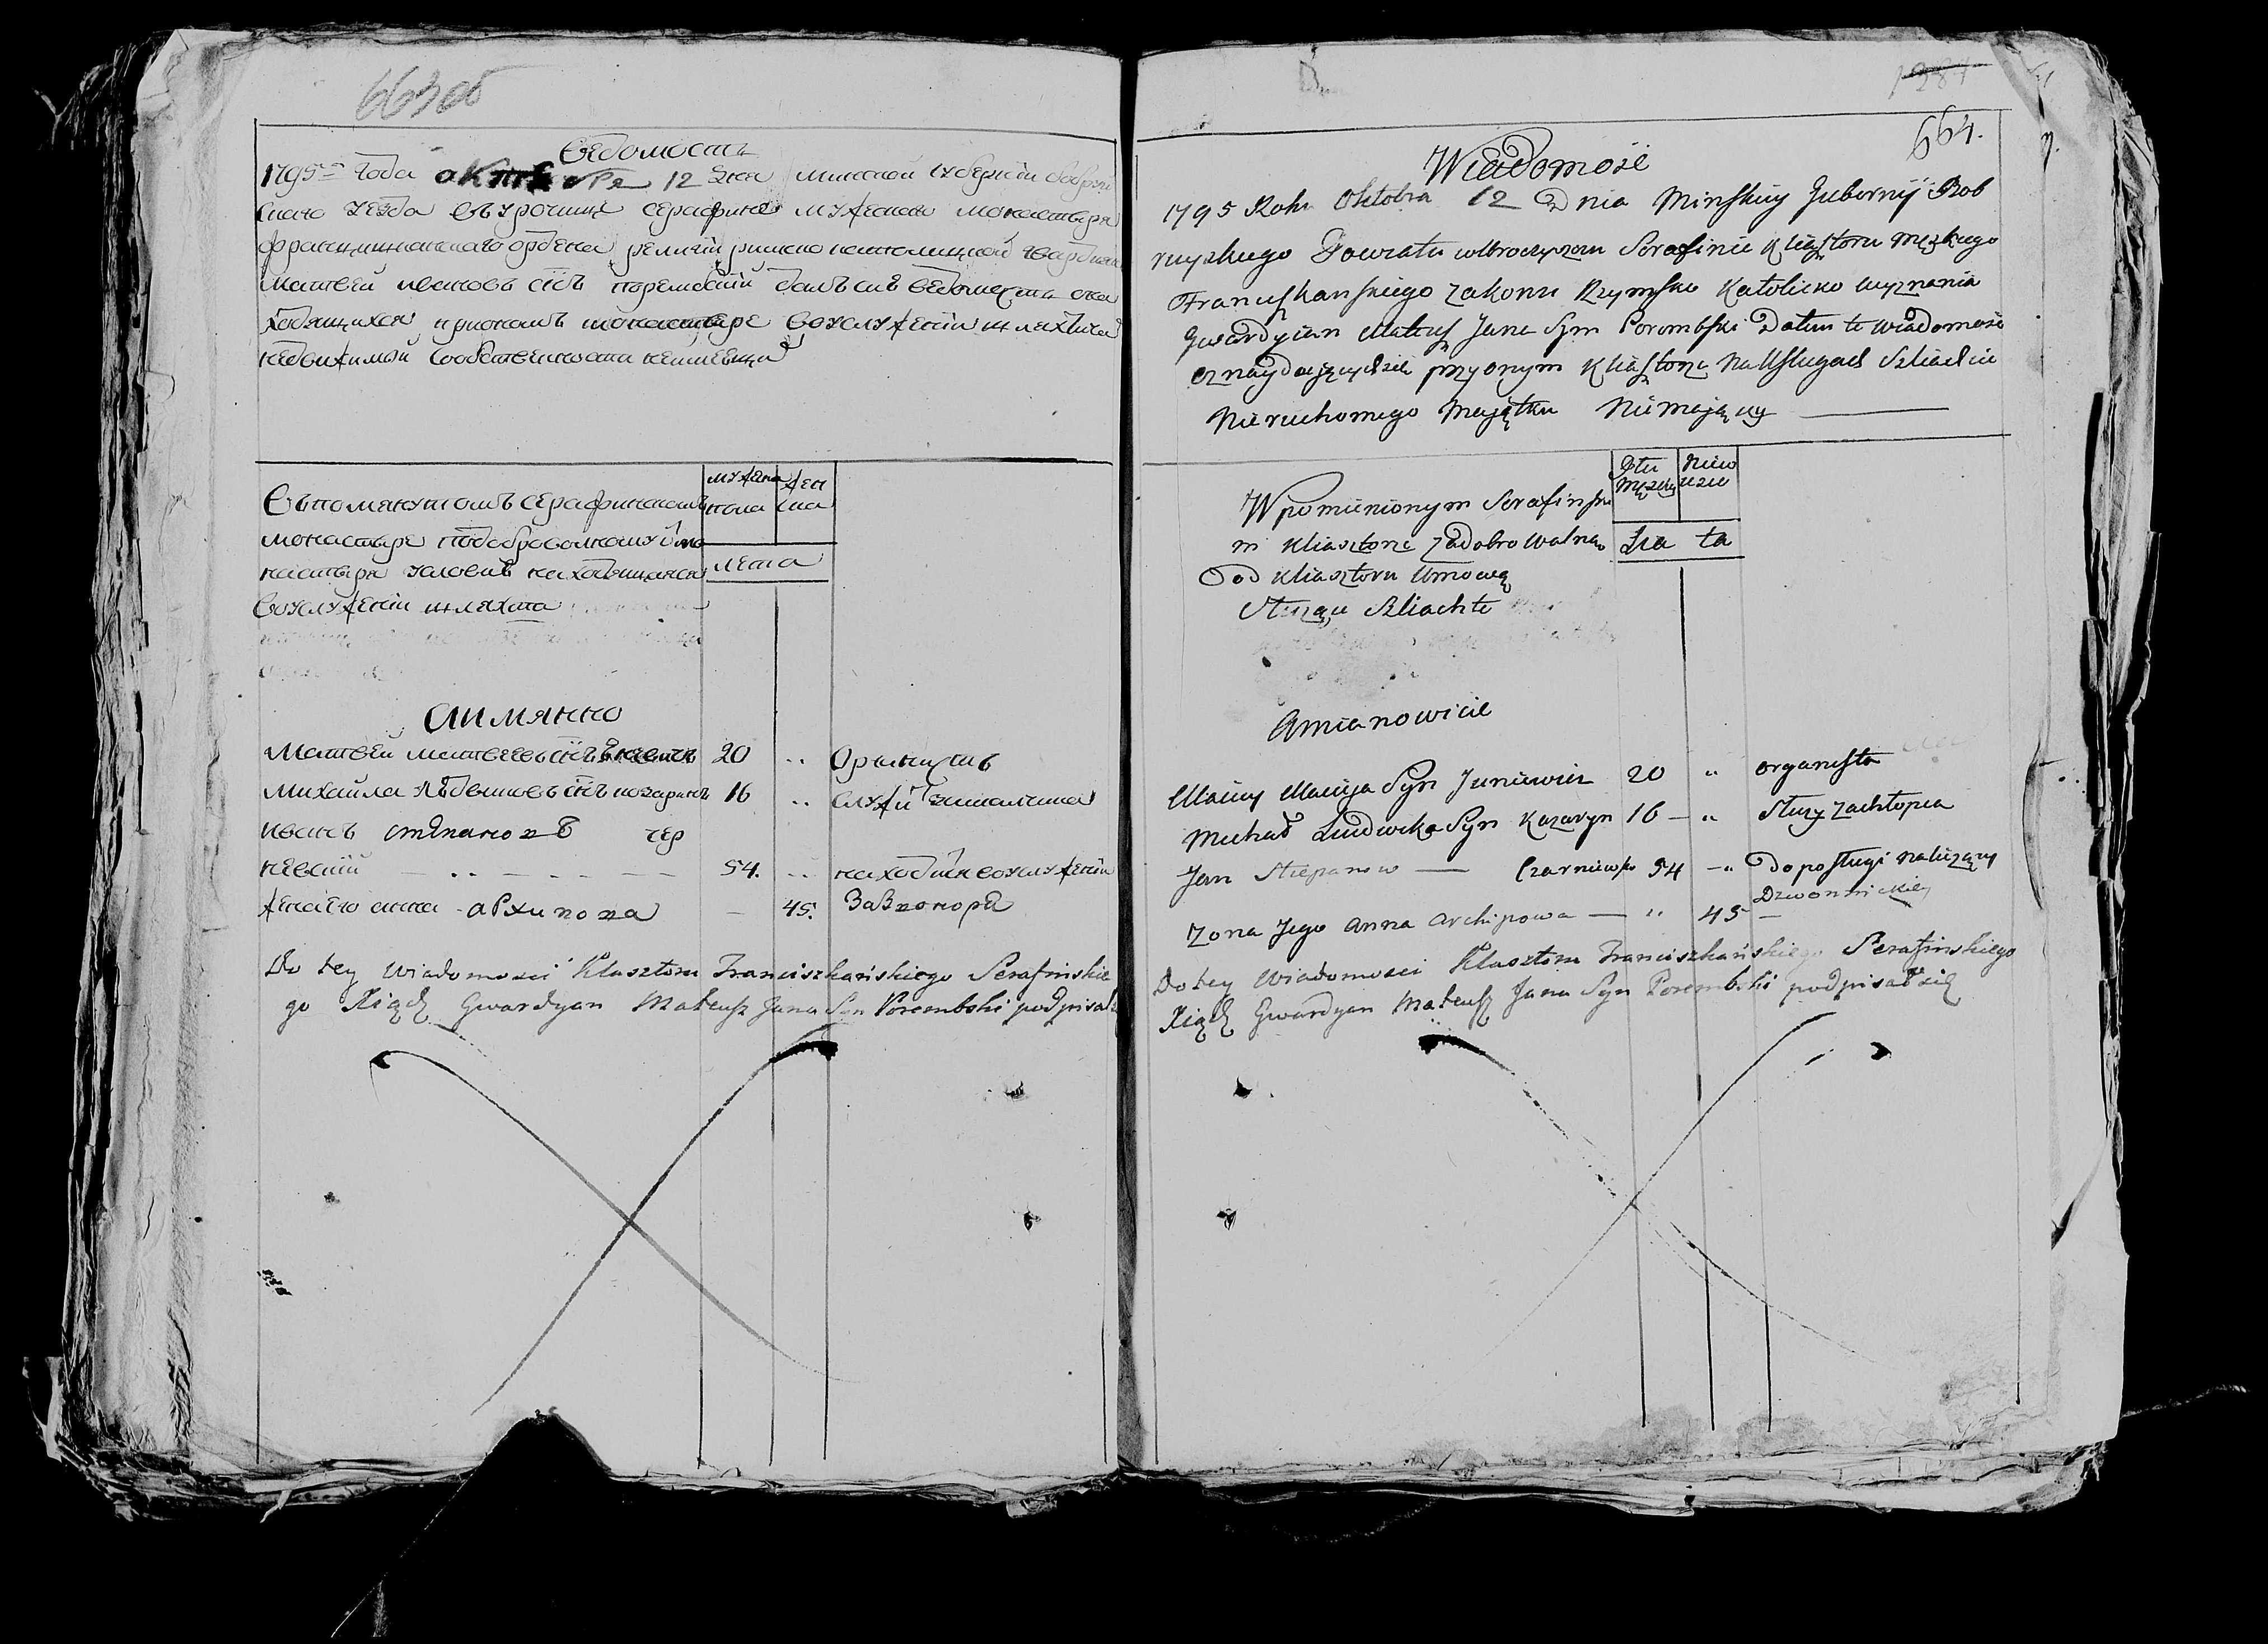 663об
Ведомость
1795го года октября 12 дня минской губернии бобруй
скаго уезда въ урочище серафине мужескаго монастыря
францишканскаго ордена религии римско католицкой гвардиянъ
матвей ивановъ снъ порембский далъ сию ведомость о на
ходящихся при ономъ монастыре во услужении шляхтича
недвижимый собственности неимеющи
Въ помянутомъ серафинскомъ
монастыре по добровольному с мо
настыря условию находящаяся
во услужении шляхта
мужеска
пола
жен
ска
лета
а имянно
матвей матвеевъ снъ 20 .. органистъ
михайла людвиковъ снъ козаринъ 16 .. служи
иванъ степановъ чер
невский 54. .. находи во услужении
жена ево анна архипова 45. за звонаря
Do tey Wiadomosci Klasztoru Franciszkańskiego Serafinskie
go Xiądz Gwardyan Mateusz Jana Syn Porembski podpisał
664.
Wiadomość
1795 Roku Oktobra 12 Dnia Minskiey Gubernij Bob
ruyskiego Powiatu w Uroczyszczu Serafinie Kliasztoru męzkiego
Franciszkanskiego zakonu Rzymsko Katolicko wyznania
Gwardyian Mateusz Jana Syn Porombski Datum te wiadomość
oznaydującychsie przy onym Kliasztorze Na Usługach Szliachcie
Nieruchomego Majątku Niemający
W pomienionym Serafinski
m Kliasztorze za dobrowalną
Od Kliasztoru Umową
Służące Szliachte
płu
męzkiey
niew
ieście
Lia ta
Amianowicie
Maciey Macieja Syn Juniewicz 20 " organista
Michał Ludwika Syn Kazaryn 16 — " Służy zachłopca
Jan Stiepanow — Czarniewski 54 — " Do posługi należący
Dzwonnickiey
Zona Jego Anna Archipowa — " 45 —
Do tey Wiadomosci Klasztoru Franciszkańskiego Serafinskiego
Xiądz Gwardyan Mateusz Jana Syn Porembski podpisał się